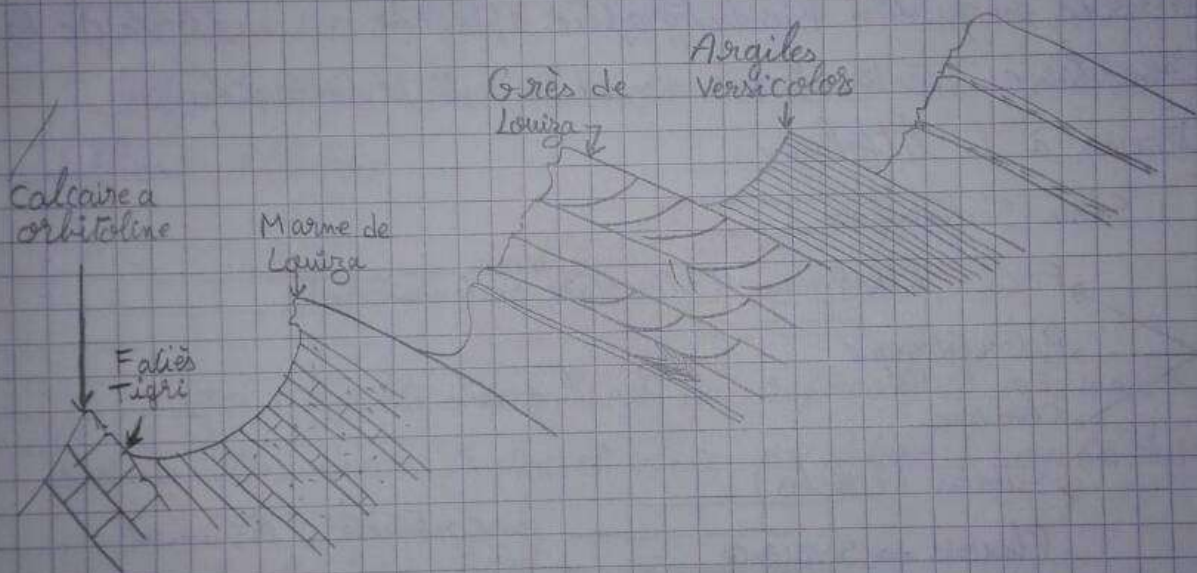 Calcaire a
orbitoline
Faliès
Tigri
Marme de
Louiza
Grès de
Louiza
Argiles
Versicolors